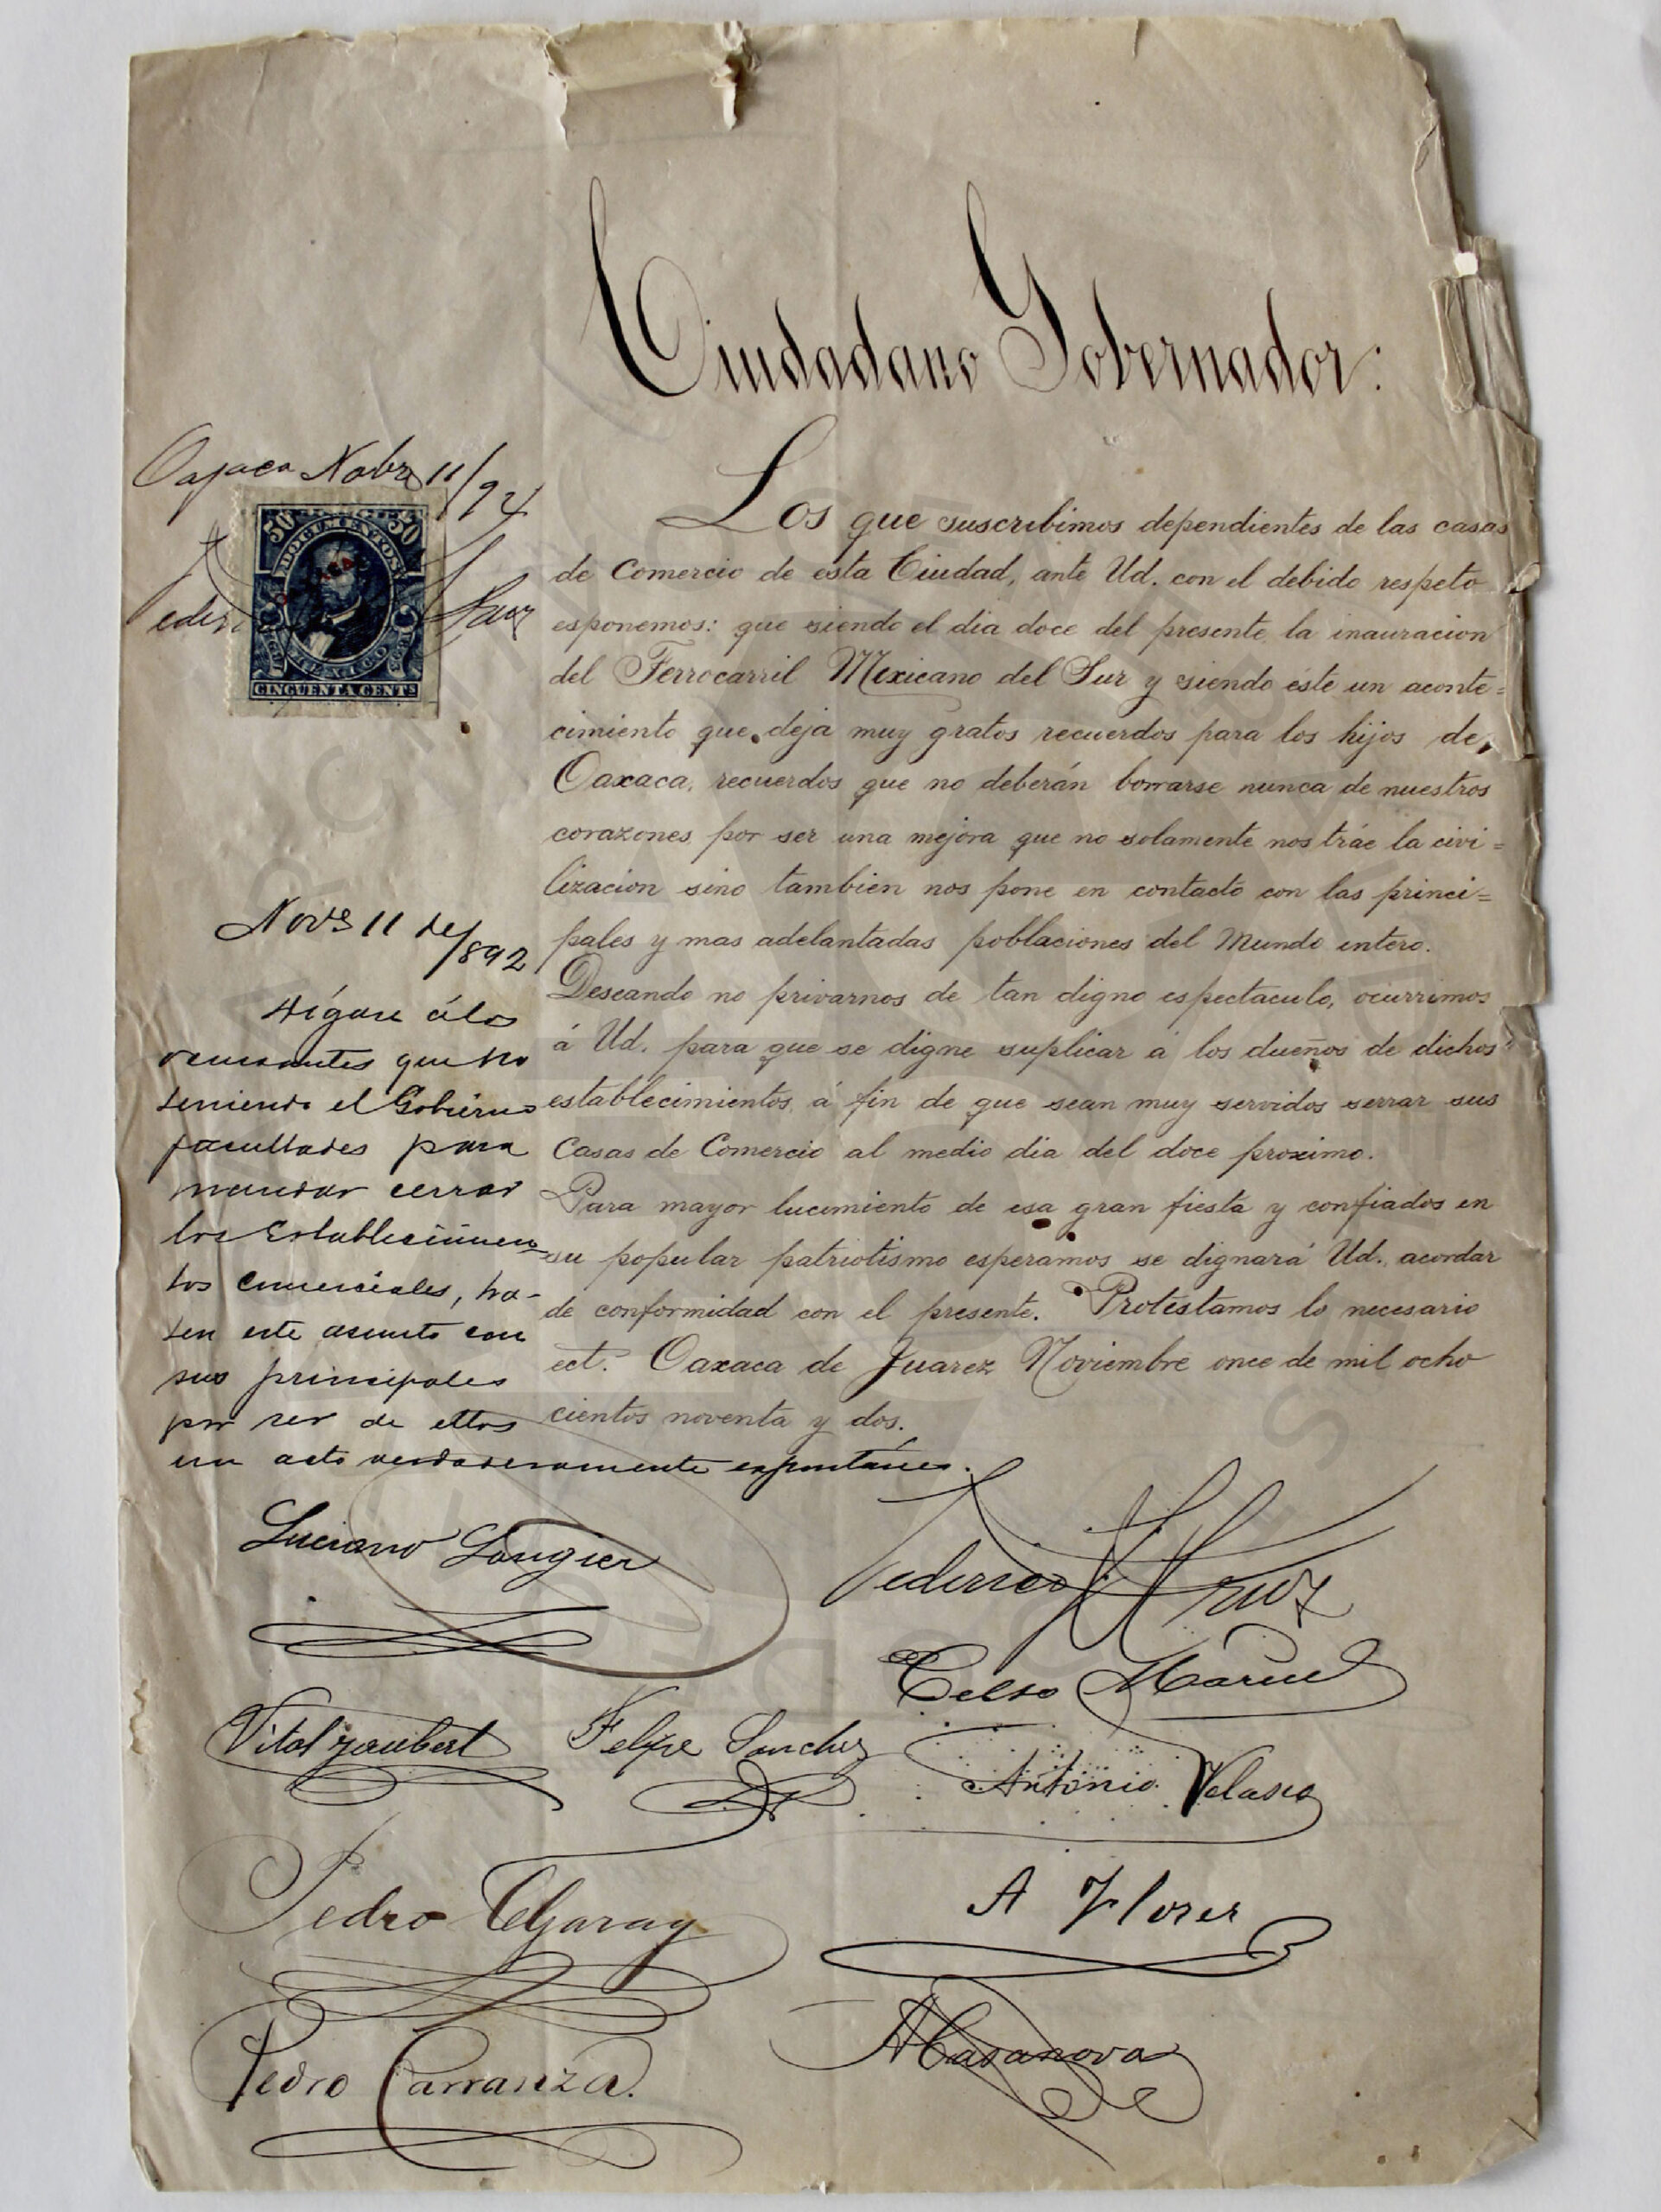 Ciudadano Gobernador:
Los que suscribimos dependientes de las casas
de Comercio de esta Ciudad, ante Ud. con el debido respeto
esponemos: que siendo el dia doce del presente la inauracion
del Ferrocarril Mexicano del Sur y siendo éste un aconte=
cimiento que deja muy gratos recuerdos para los hijos de
Oaxaca, recuerdos que no deberán borrarse nunca de nuestros
corazones por ser una mejora que no solamente nos tráe la civi=
lizacion sino tambien nos pone en contacto con las princi=
pales y mas adelantadas poblaciones del Mundo entero.
Deseando no privarnos de tan digno espectaculo, ocurrimos
á Ud. para que se digne suplicar a los dueños de dichos
establecimientos á fin de que sean muy servidos serrar sus
Casas de Comercio al medio dia del doce proximo.
Para mayor lucimiento de esa gran fiesta y confiados en
su popular patriotismo esperamos se dignará Ud. acordar
de conformidad con el presente. Protestamos lo necesario
ect. Oaxaca de Juarez Noviembre once de mil ocho
cientos noventa y dos.
Oajaca Nobre 11/92
50 50
DOCUMENTOS
MEXICO
CINCUENTA CENTS
Novre 11 de/892
Dígase á los
ocursantes que no
teniendo el Gobierno
facultades para
mandar cerrar
los Establecimien
tos comerciales, tra-
ten este asunto con
sus principales
por ser de ellos
un acto verdaderamente espontáneo.
Luciano Laugier
Federico Cruz
Celso
Vital Jaubert
Felipe Sanchez
Antonio Velasco
Pedro Garay
A Flores
Pedro Carranza.
A Casanova